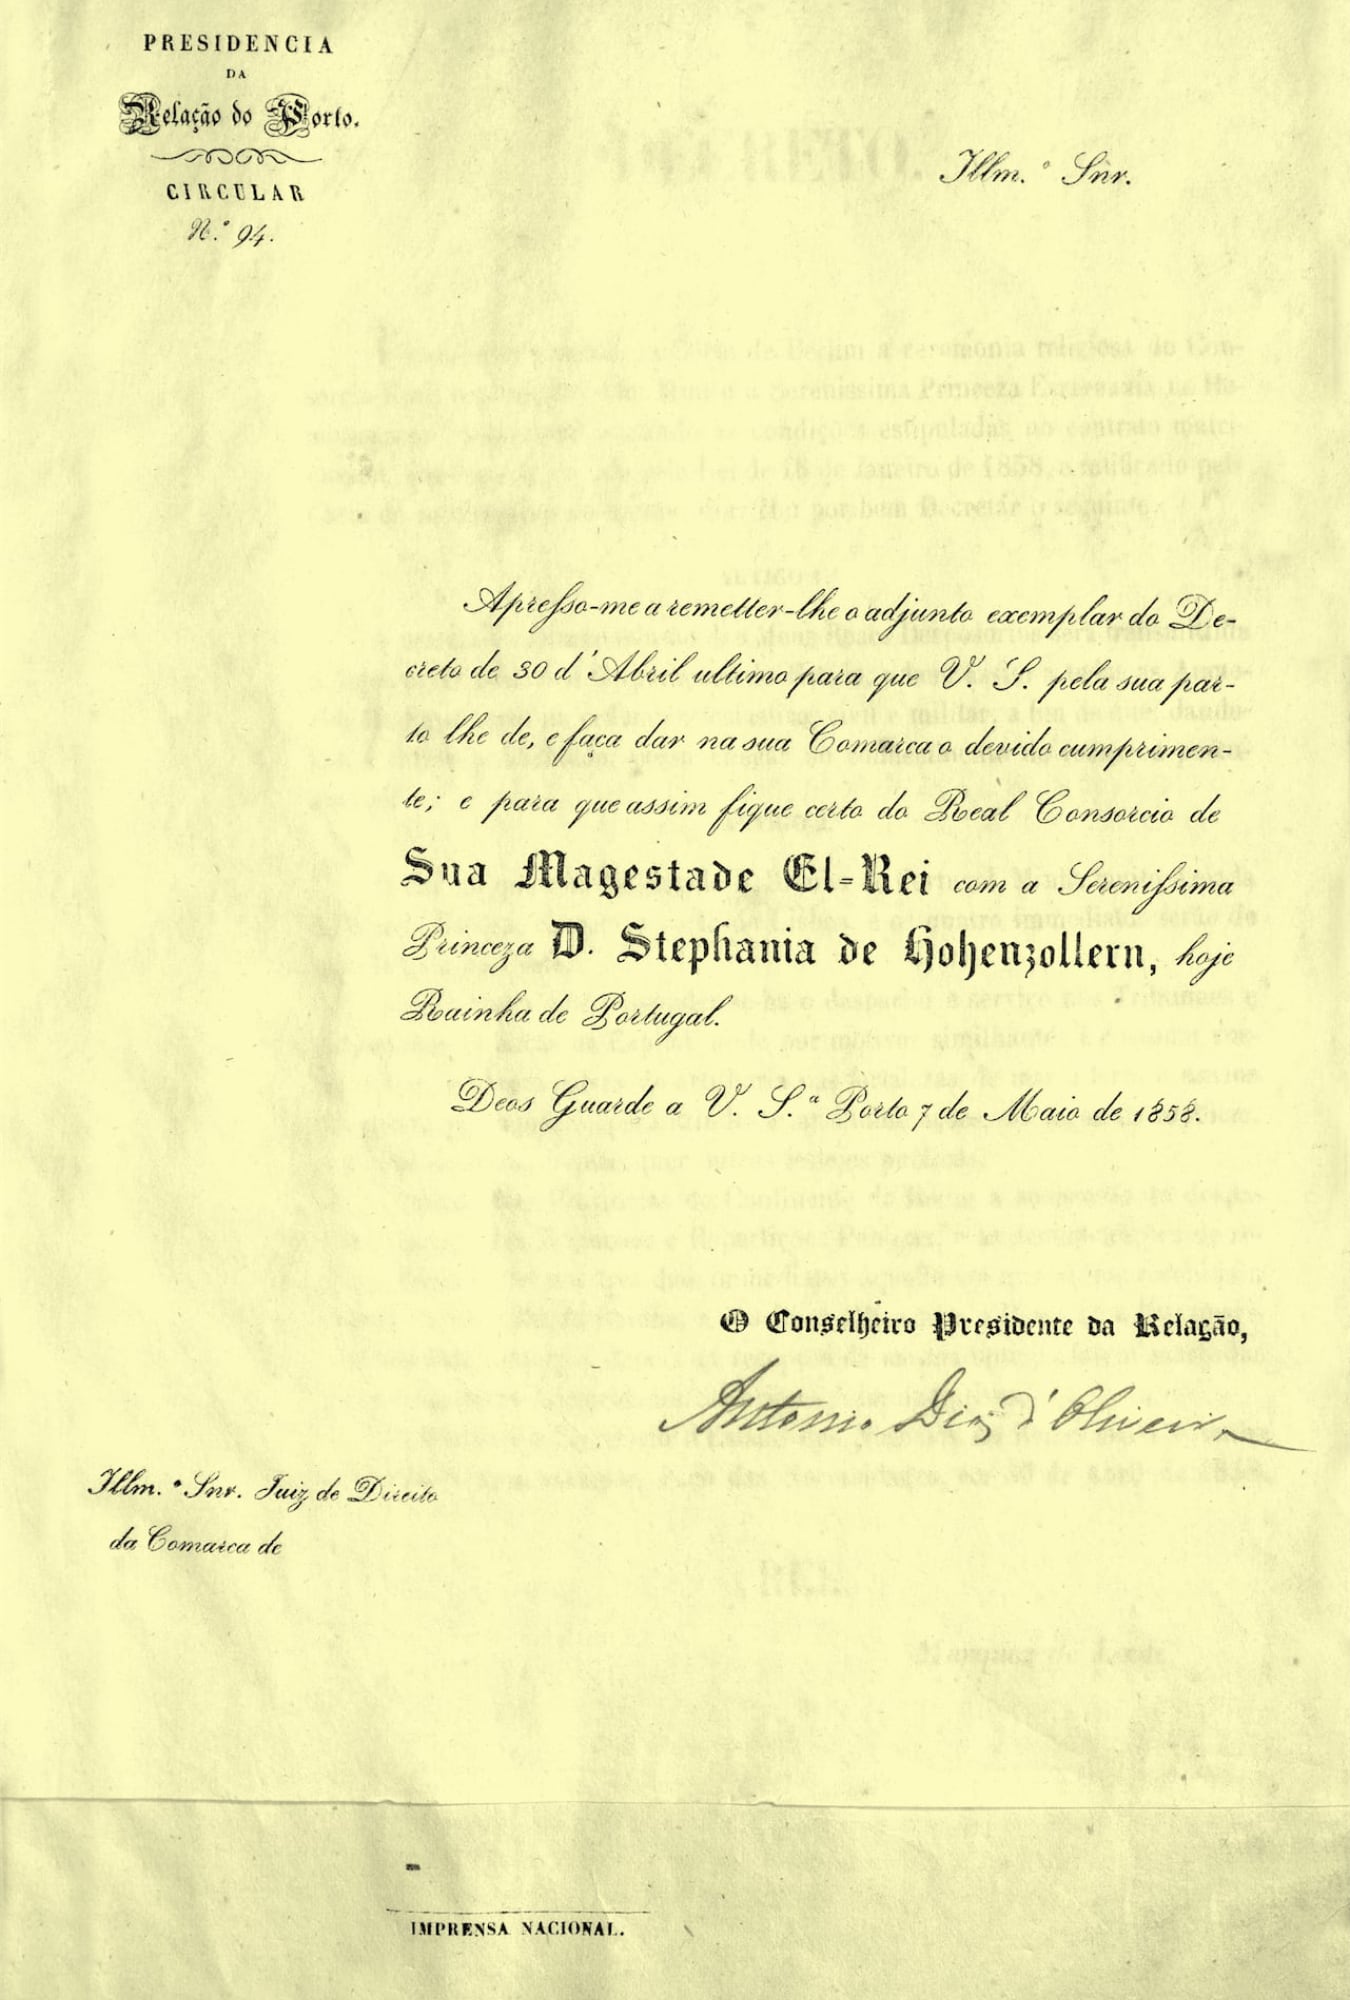 PRESIDENCIA
DA
Relação do Porto.
CIRCULAR
N.º 94.
Illm.º Snr.
Apresso-me a remetter-lhe o adjunto exemplar do De-
creto de 30 d'Abril ultimo para que V. S. pela sua par-
te lhe de, e faça dar na sua Comarca o devido cumprimen-
to; e para que assim fique certo do Real Consorcio de
Sua Magestade El-Rei com a Serenissima
Princeza D. Stephania de Hohenzollern, hoje
Rainha de Portugal.
Deos Guarde a V. S.ª Porto 7 de Maio de 1858.
O Conselheiro Presidente da Relação,
Antonio Dias d'Oliveira
Illm.º Snr. Juiz de Direito
da Comarca de
IMPRENSA NACIONAL.